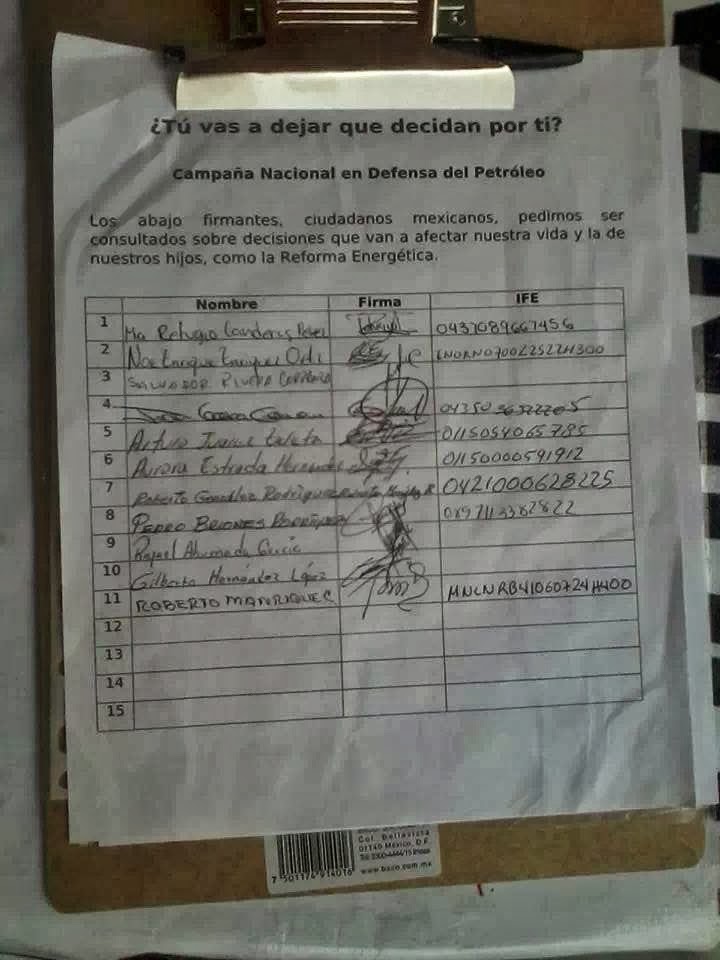 ¿Tú vas a dejar que decidan por ti?
Campaña Nacional en Defensa del Petróleo
Los abajo firmantes, ciudadanos mexicanos, pedimos ser
consultados sobre decisiones que van a afectar nuestra vida y la de
nuestros hijos, como la Reforma Energética.
Nombre Firma IFE
1 Ma Refugio 0437089667456
2 Noe Enrique
3 SALVADOR RIVERA
4
5 Arturo 0115054065785
6 Aurora Estrada Hernandez 0115000591912
7 Roberto González Rodríguez 0421000628225
8 PEDRO BRIONES RODRÍGUEZ
9 Rafael Ahumada García
10 Gilberto Hernández López
11 ROBERTO MANRIQUEZ MNCNRB41060724H400
12
13
14
15
Col. Bellavista
01140 México, D.F.
www.baco.com.mx
7 501174 914016